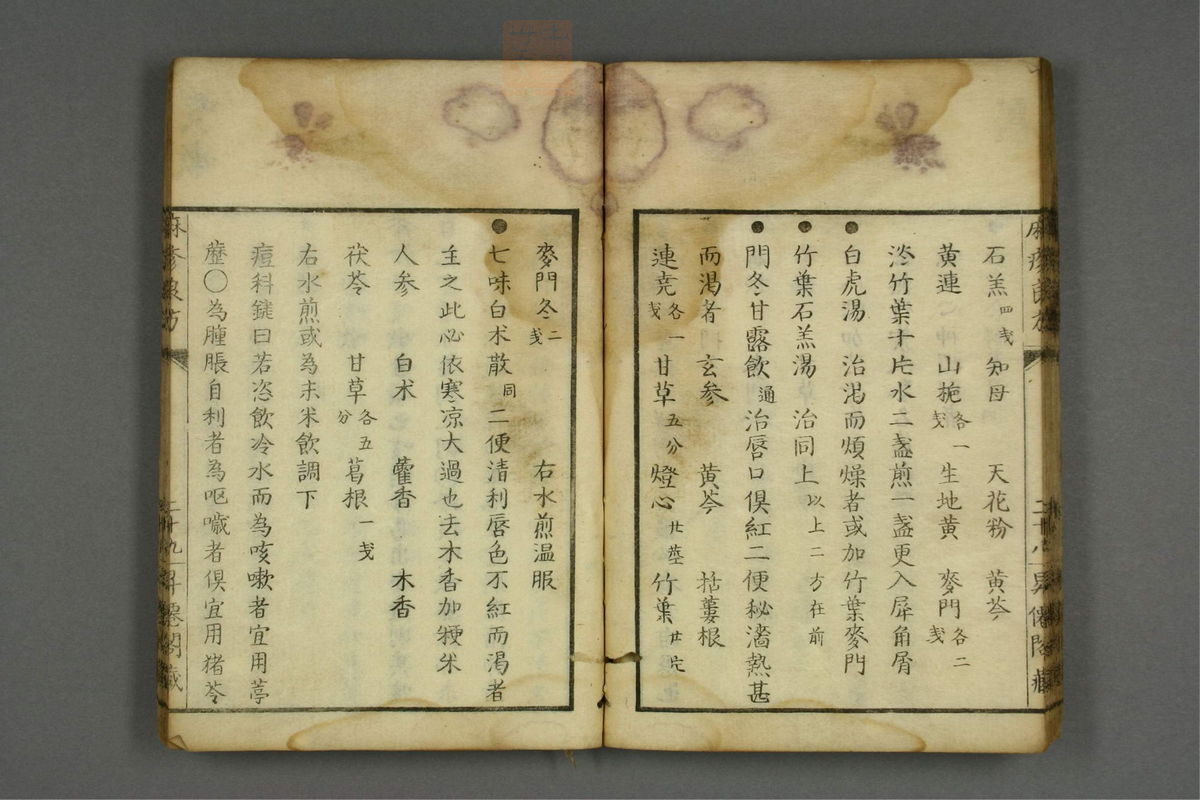 石羔四戔 知母 天花粉 黄芩
黄連 山梔各一戔 生地黄 麥門各二戔
淡竹葉十片水二盞煎一盞更入犀角屑
●白虎湯加 治渇而煩燥者或加竹葉麥門
●竹葉石羔湯 治同上以上二方在前
●門冬甘露飲通治唇口倶紅二便秘濇熱甚
而渇者 玄参 黄芩 栝蔞根
連堯各一戔 甘草五分 燈心廿莖 竹葉廿片
麥門冬二戔 右水煎温服
●七味白术散同二便清利唇色不紅而渇者
主之此必依寒凉大過也去木香加粳米
人参 白术 藿香 木香
茯苓 甘草各五分 葛根一戔
右水煎或為末米飲調下
痘科鍵曰若恣飲冷水而為咳嗽者宜用葶
藶○為腫脹自利者為呕噦者倶宜用猪苓
二十九